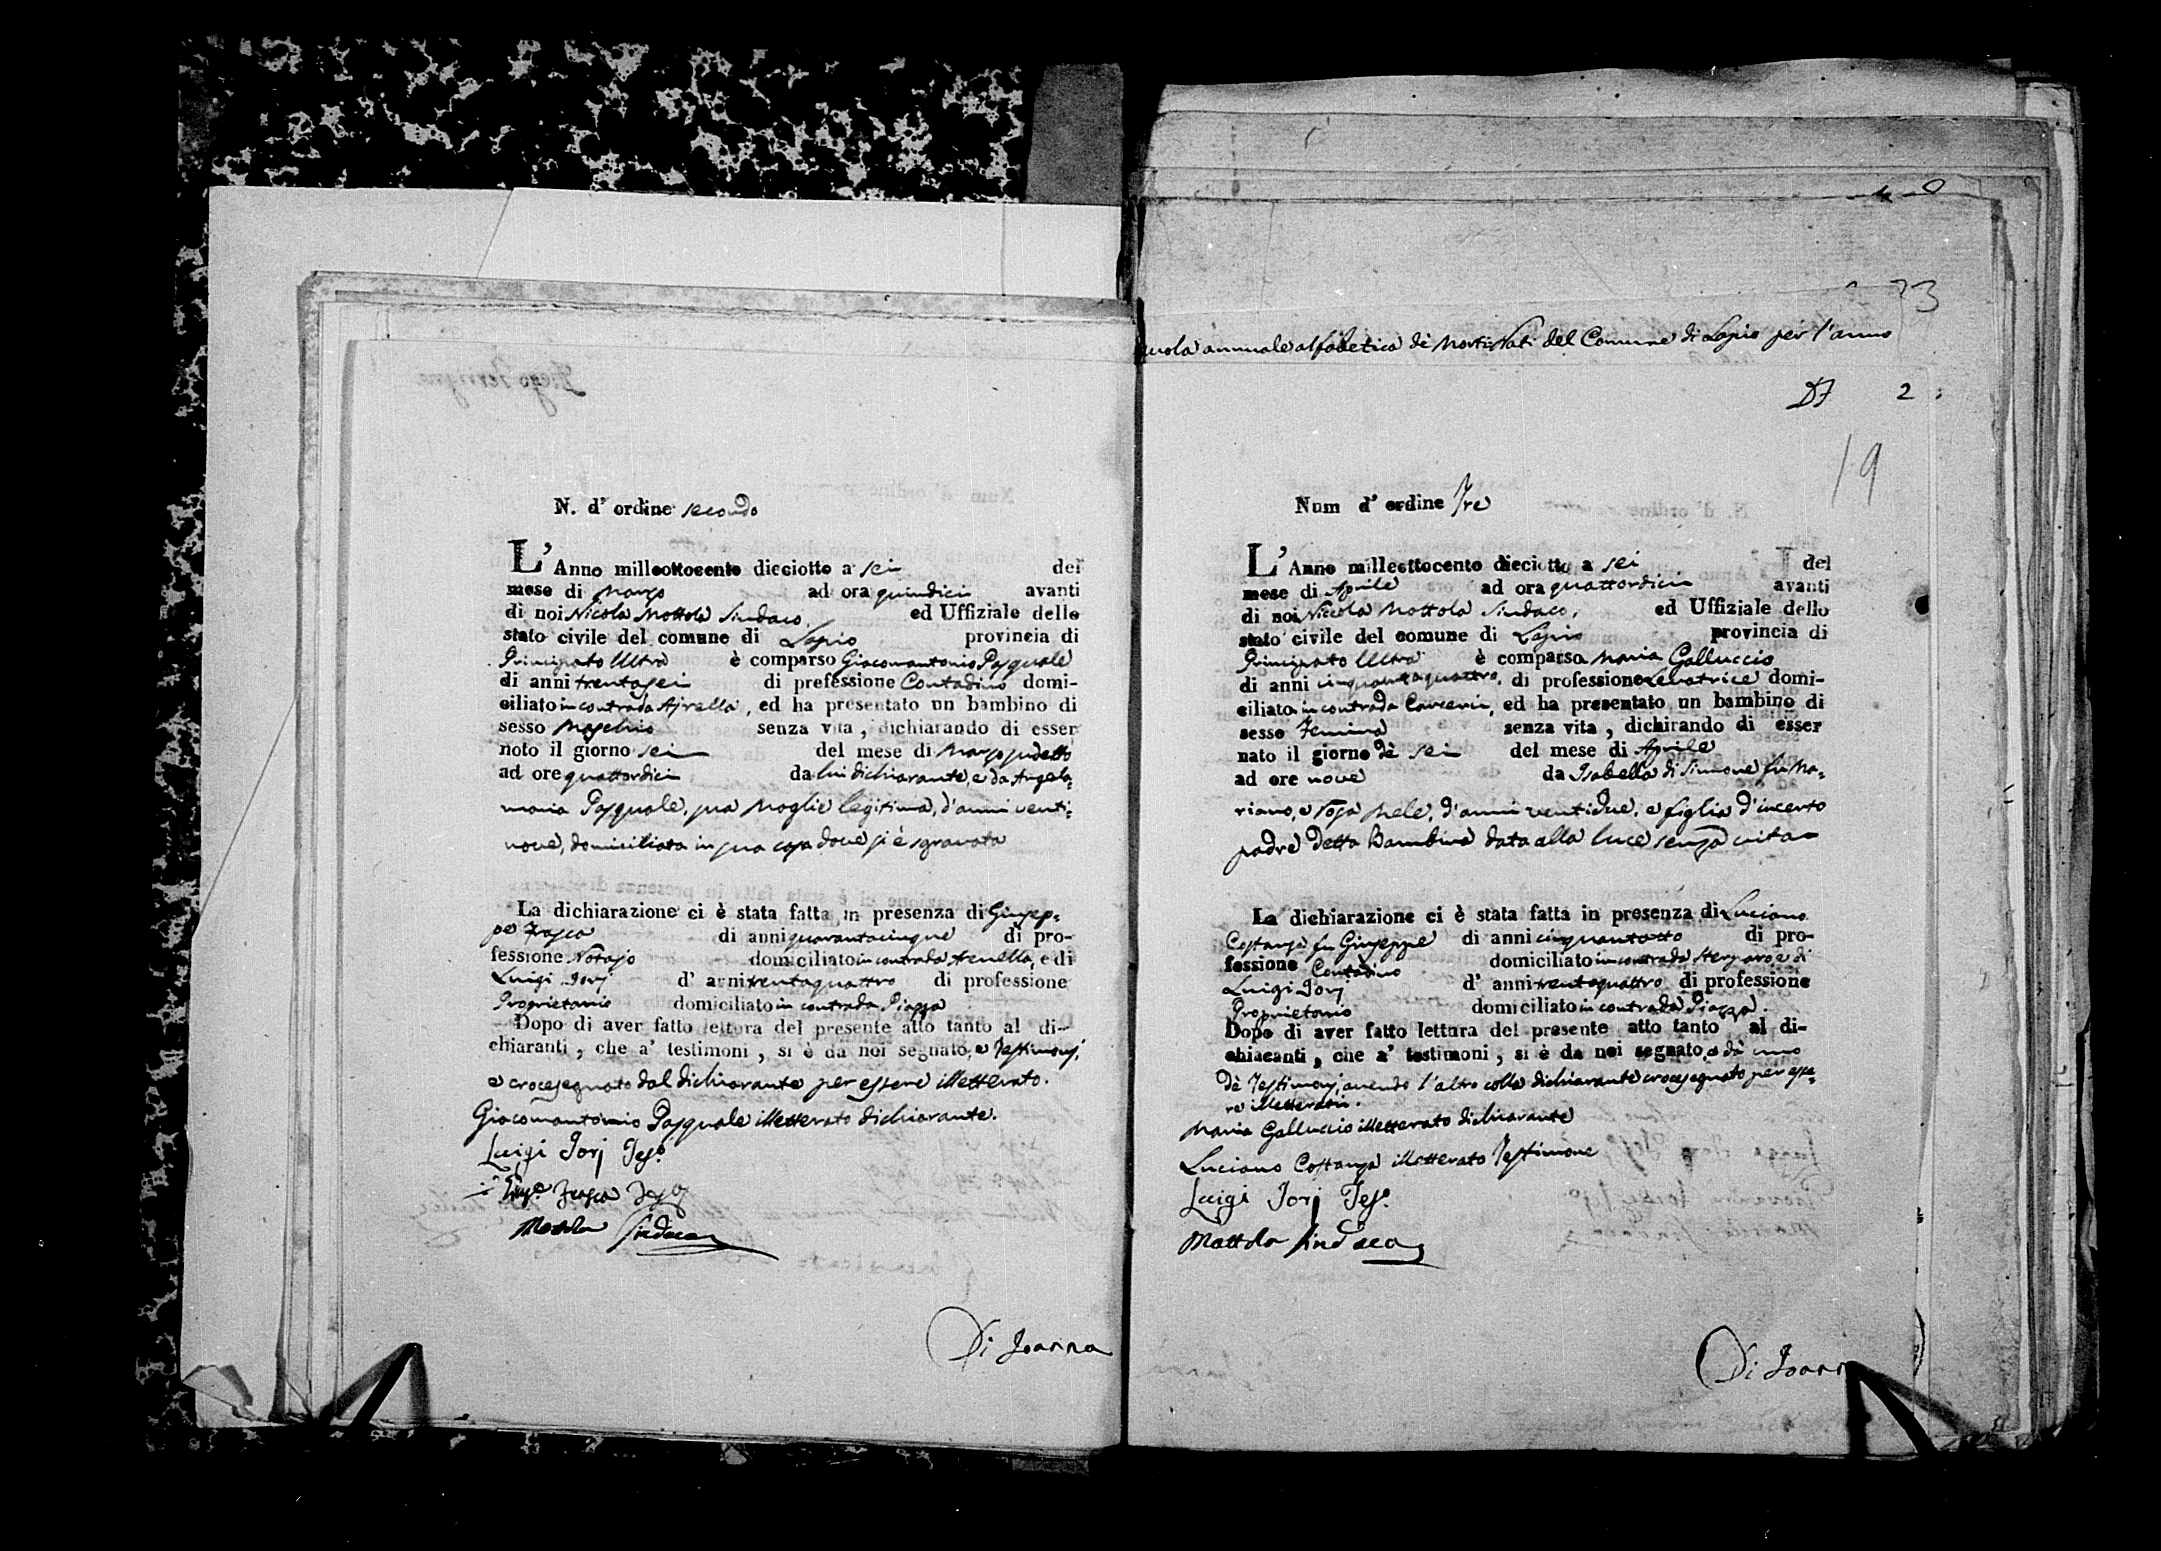 N. d' ordine secondo
L' Anno milleottocento dieciotto a sei del
mese di Marzo ad ora quindici avanti
di noi Nicola Mottola Sindaco, ed Uffiziale dello
stato civile del comune di Lapio provincia di
Principato Ultra è comparso Giacomantonio Pasquale
di anni trentasei di prefessione Contadino domi-
ciliato in contrada Ajrella, ed ha presentato un bambino di
sesso Maschio senza vita, dichiarando di esser
nato il giorno sei del mese di Marzo sudetto
ad ore quattordici da lui dichiarante, e da Angela,
maria Pasquale, sua Moglie legitima, d'anni venti=
nove, domiciliata in sua casa dove si è sgravata
La dichiarazione ci è stata fatta in presenza di Giusep=
pe Frasca di anni quarantacinque di pro-
fessione Notajo domiciliato in contrada Arenella, e di
Luigi Iorj d' anni trentaquattro di professione
Proprietario domiciliato in contrada Piazza
Dopo di aver fatto lettura del presente atto tanto al di-
chiaranti, che a' testimoni, si è da noi segnato, e Testimonj,
e crocesegnato dal dichiarante per essere illetterato.
Giacomantonio Pasquale illetterato dichiarante.
Luigi Iorj Teso
Giuse Frasca Teso
Mottola Sindaco
Di Ioanna
73
annuale alfabetica de Morti Nati del Comune di Lapio per l'anno
2
19
Num d' ordine Tre
L' Anno milleottocento dieciotto a sei del
mese di Aprile ad ora quattordici avanti
di noi Nicola Mottola Sindaco, ed Uffiziale dello
stato civile del comune di Lapio provincia di
Principato Ultra è comparsa Maria Galluccio
di anni cinquantaquattro, di professione Levatrice domi-
ciliata in contrada Carcerii, ed ha presentato un bambino di
sesso Femina senza vita, dichirando di esser
nato il giorno dè sei del mese di Aprile
ad ore nove da Isabella di Simone fu Ma=
riano, e Rosa Mele, d'anni ventidue, e figlia d'incerto
padre detta Bambina data alla luce senza vita
La dichiarazione ci è stata fatta in presenza di Luciano
Costanza fu Giuseppe di anni cinquantotto di pro-
fessione Contadino domiciliato in contrada e di
Luigi Iorj d' anni trentaquattro di professione
Proprietario domiciliato in contrada Piazza.
Dopo di aver fatto lettura del presente atto tanto al di-
chiaranti, che a' testimoni, si è da noi segnato, e da uno
dè Testimonj, avendo l'altro colla dichiarante crocesegnato per esse=
re illetterati.
Maria Galluccio illetterato dichiarante
Luciano Costanza illetterato Testimone
Luigi Iorj Teso
Mottola Sindaco
Di Ioann